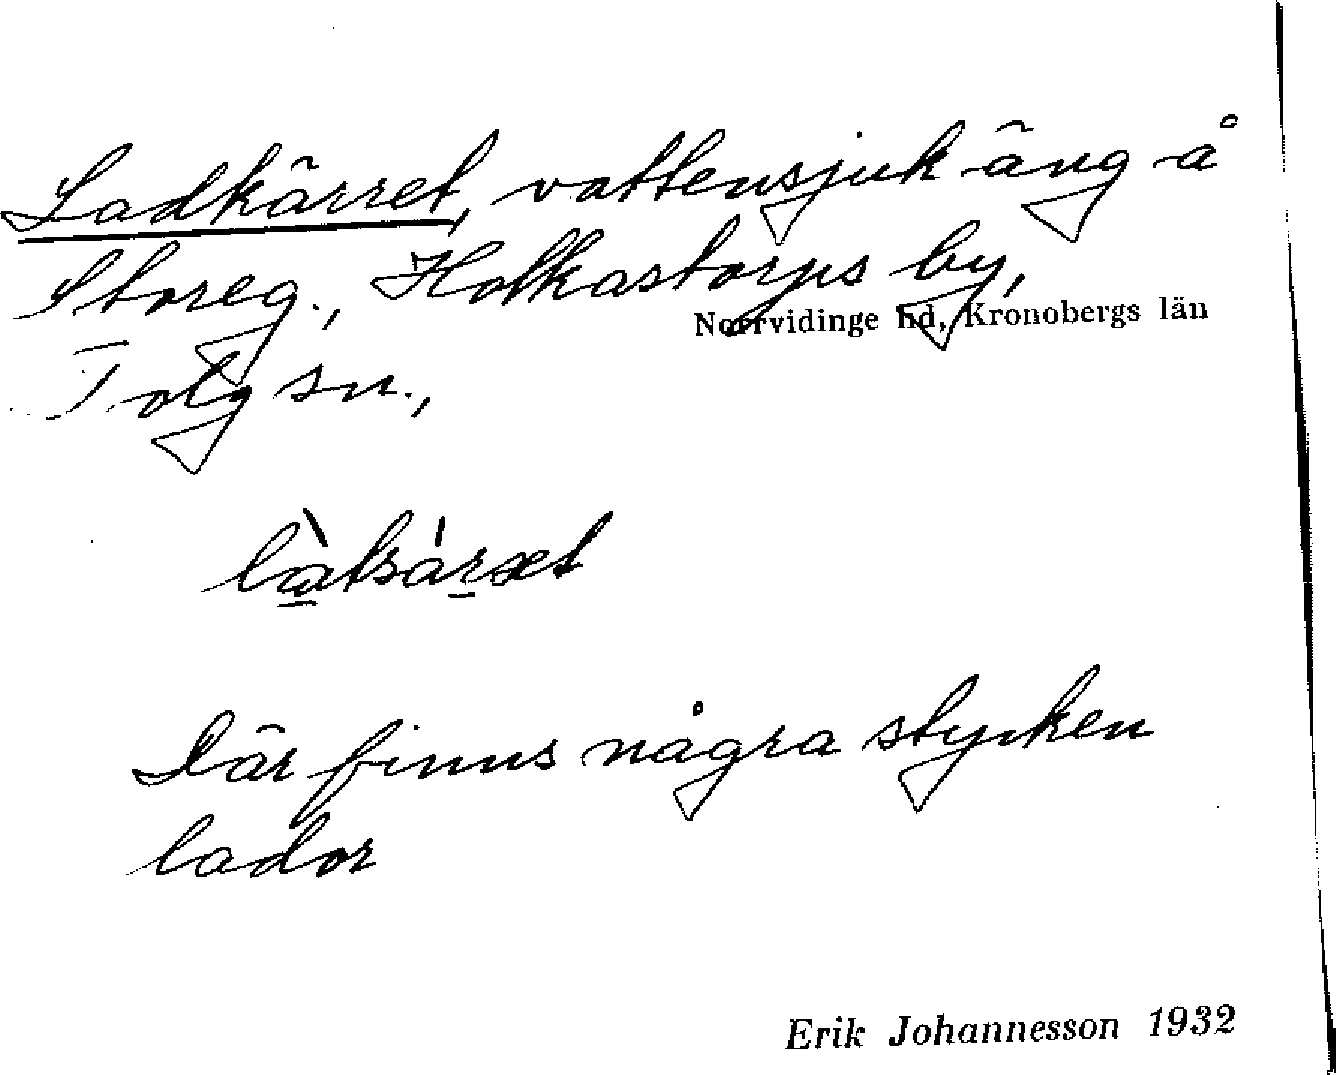 Ladkärret, vattensjuk äng å
Storeg., Holkastorps by,
Norrvidinge hd, Kronobergs län
Tolg sn.,
Där finns några stycken
lador
Erik Johannesson 1932